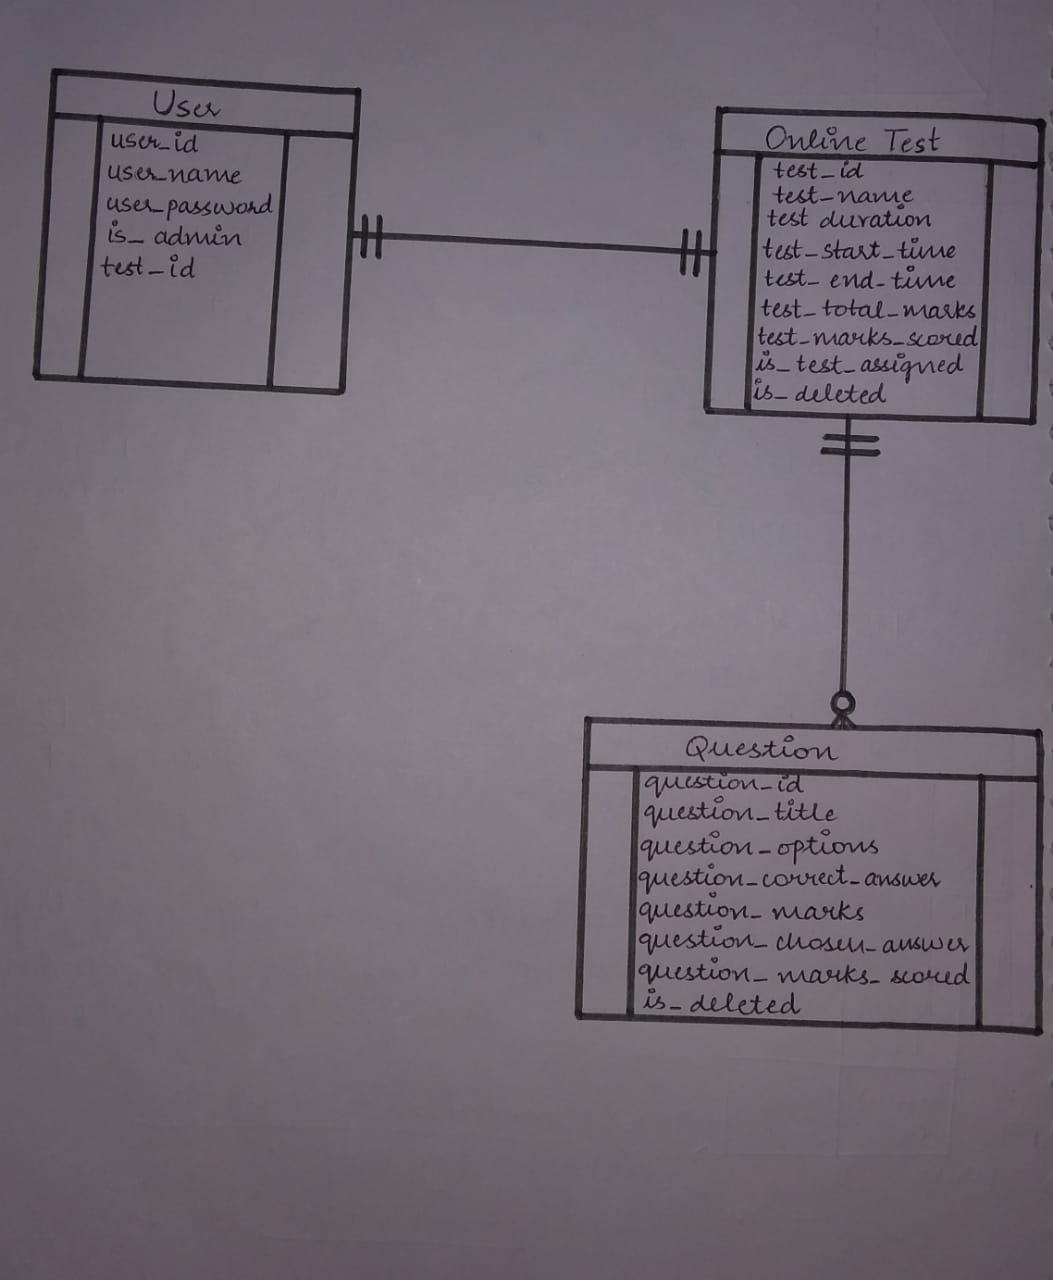 User
user_id
user_name
user_password
is_admin
test_id
Online Test
test_id
test_name
test duration
test_start_time
test_end_time
test_total_marks
test_marks_scored
is_test_assigned
is_deleted
Question
question_id
question_title
question_options
question_correct_answer
question_marks
question_chosen_answer
question_marks_scored
is_deleted